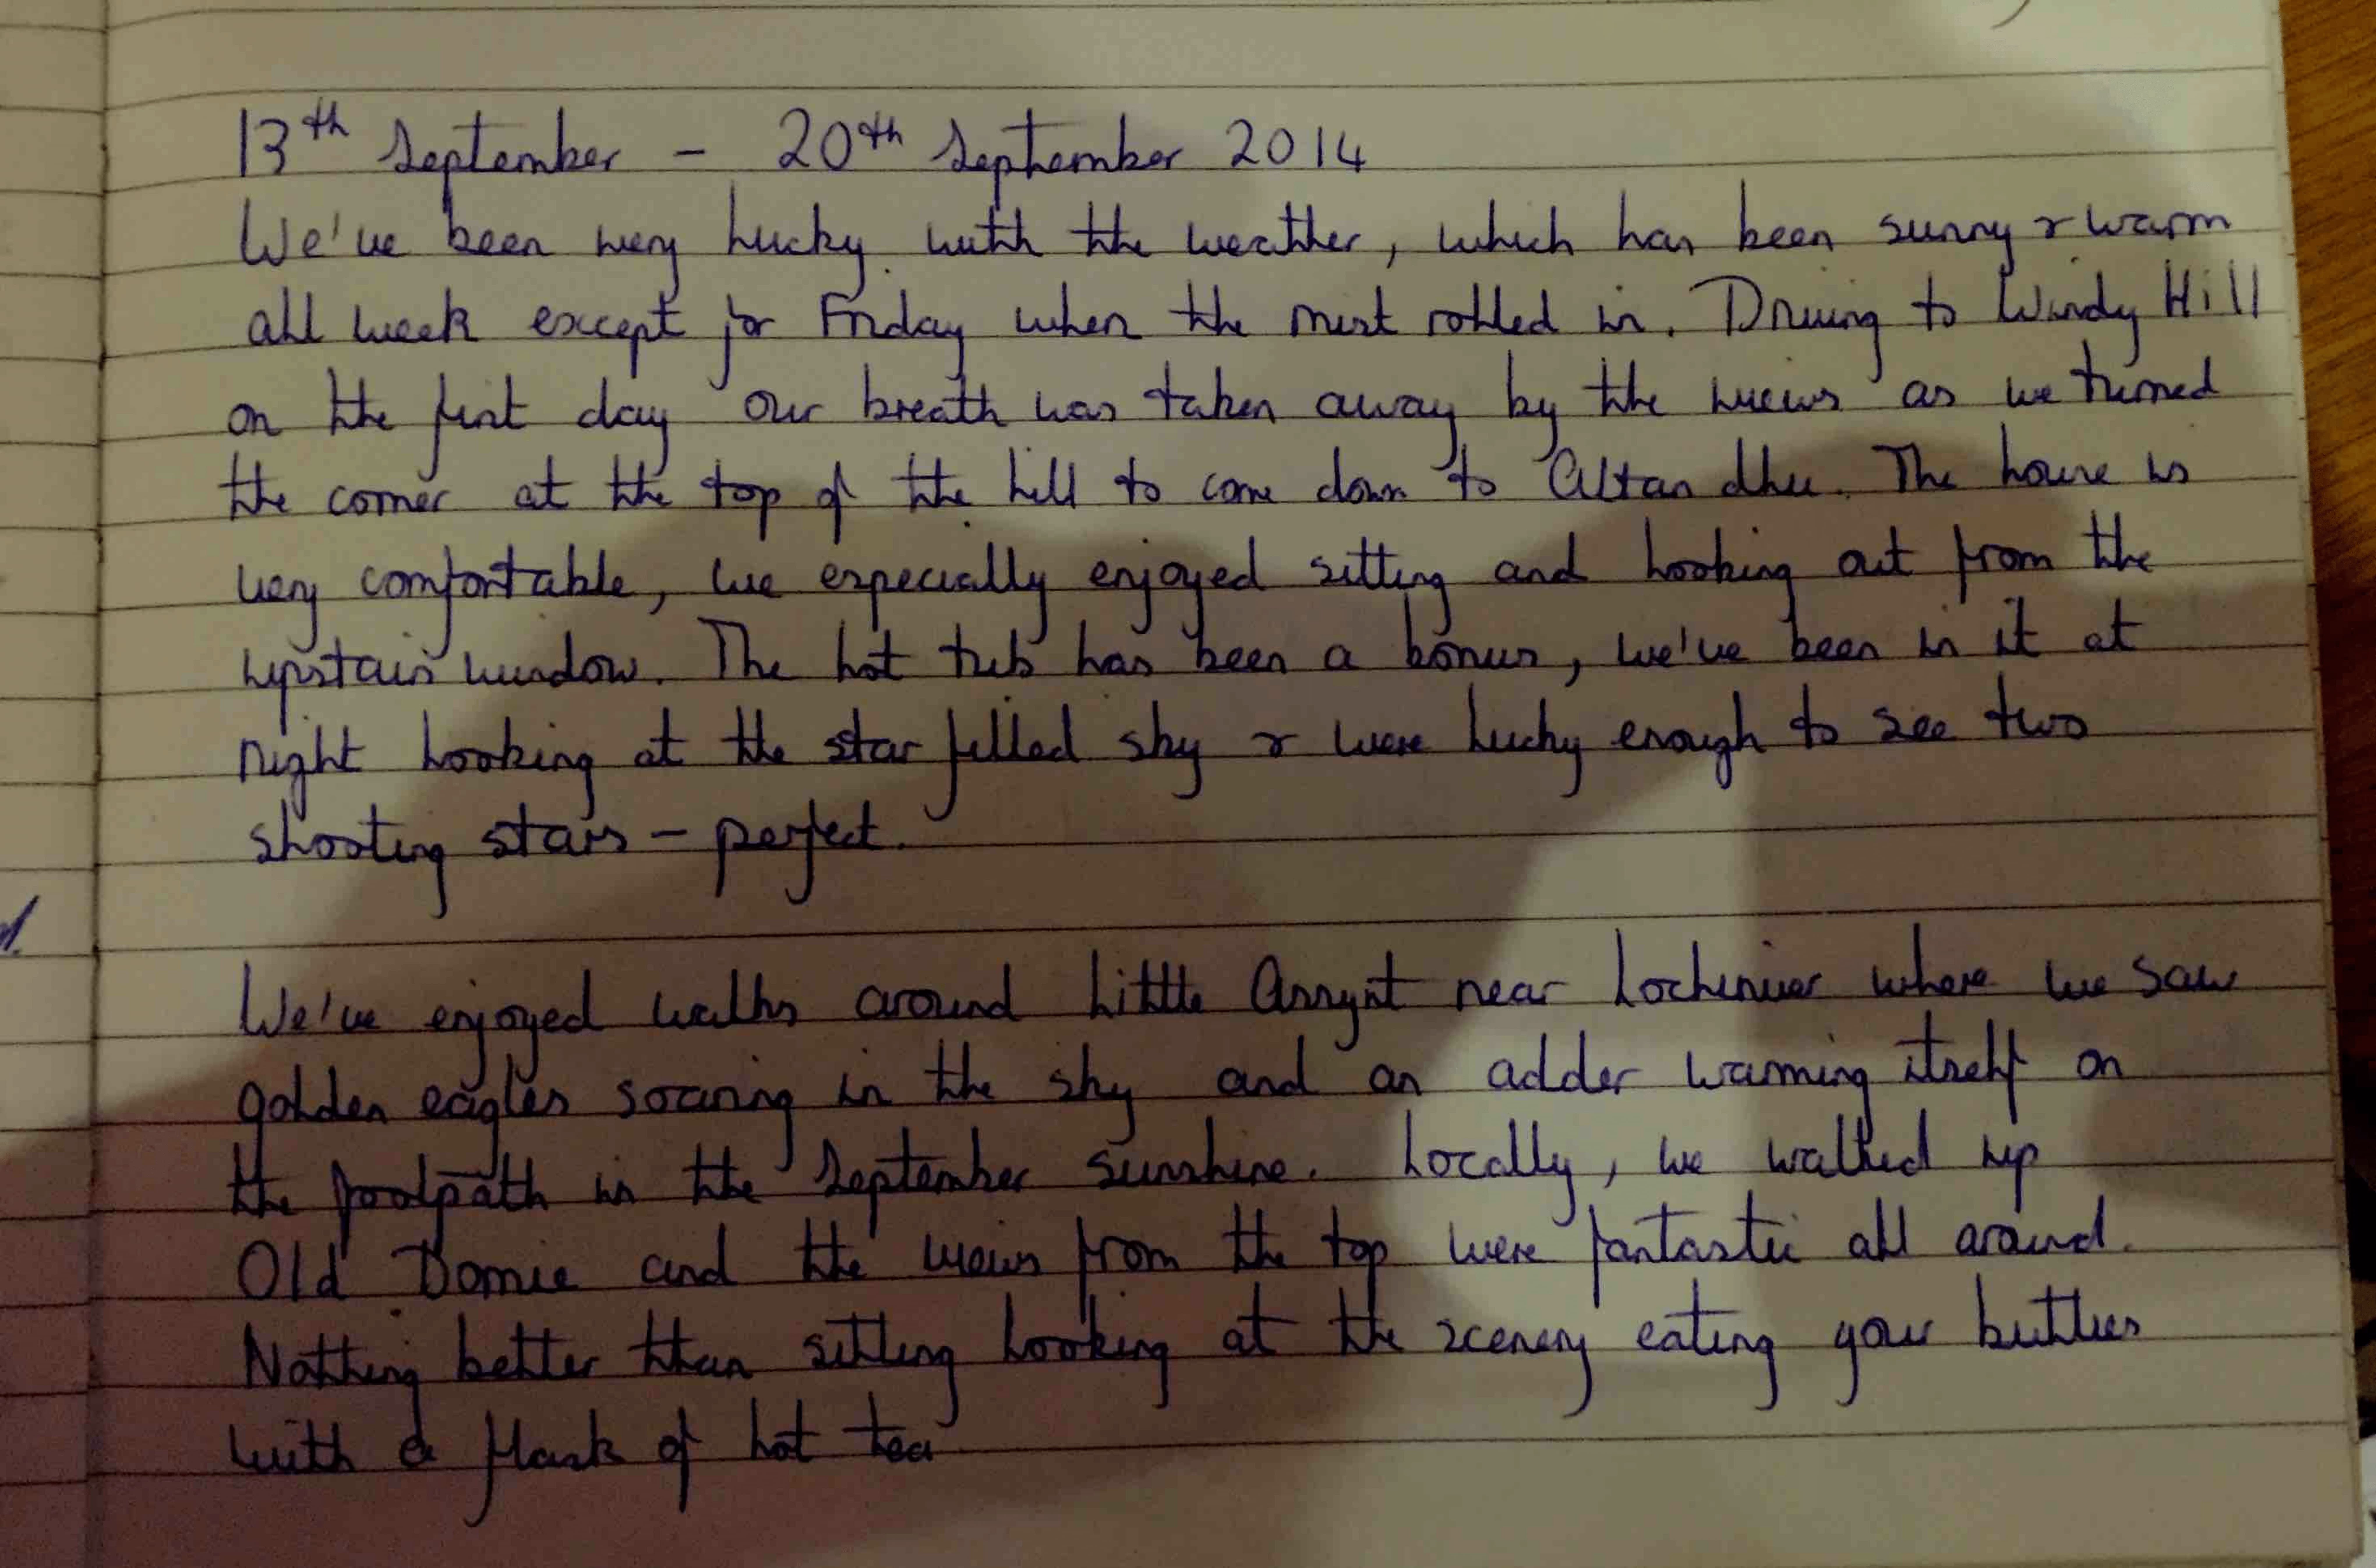 13th September - 20th September 2014
We've been very lucky with the weather, which has been sunny & warm
all week except for Friday when the mist rolled in. Driving to Windy Hill
on the first day our breath was taken away by the views as we turned
the corner at the top of the hill to come down to Altandhu. The house is
very comfortable, we especially enjoyed sitting and looking out from the
upstairs window. The hot tub has been a bonus, we've been in it at
night looking at the star filled sky & were lucky enough to see two
shooting stars - perfect.
We've enjoyed walks around Little Assynt near Lochinver where we saw
golden eagles soaring in the sky and an adder warming itself on
the footpath in the September sunshine. Locally, we walked up
Old Dornie and the views from the top were fantastic all around.
Nothing better than sitting looking at the scenery eating your butties
with a flask of hot tea